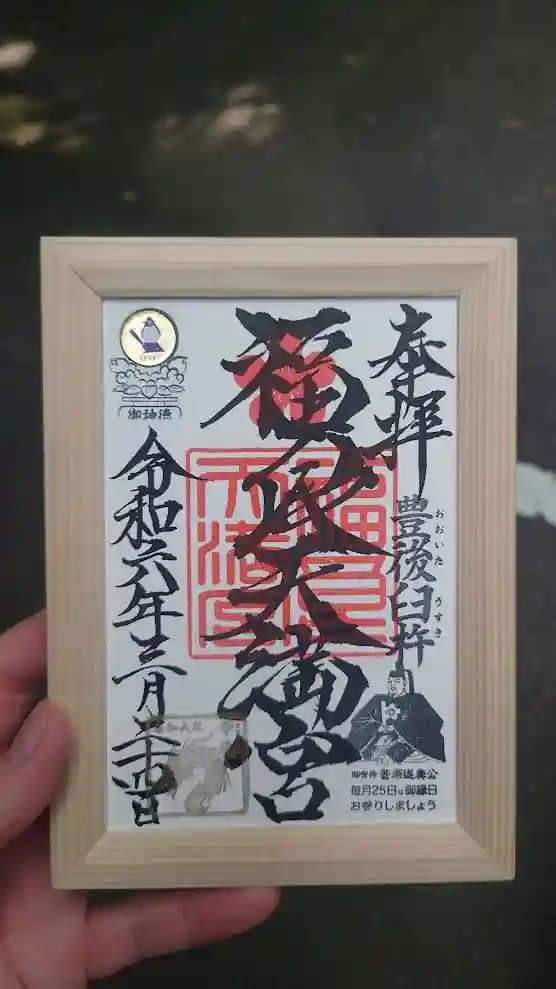 奉拝
豊後臼杵
おおいた うすき
福良天満宮
令和六年三月二十四日
御神徳
御祭神 菅原道真公
毎月25日は御縁日
お参りしましょう